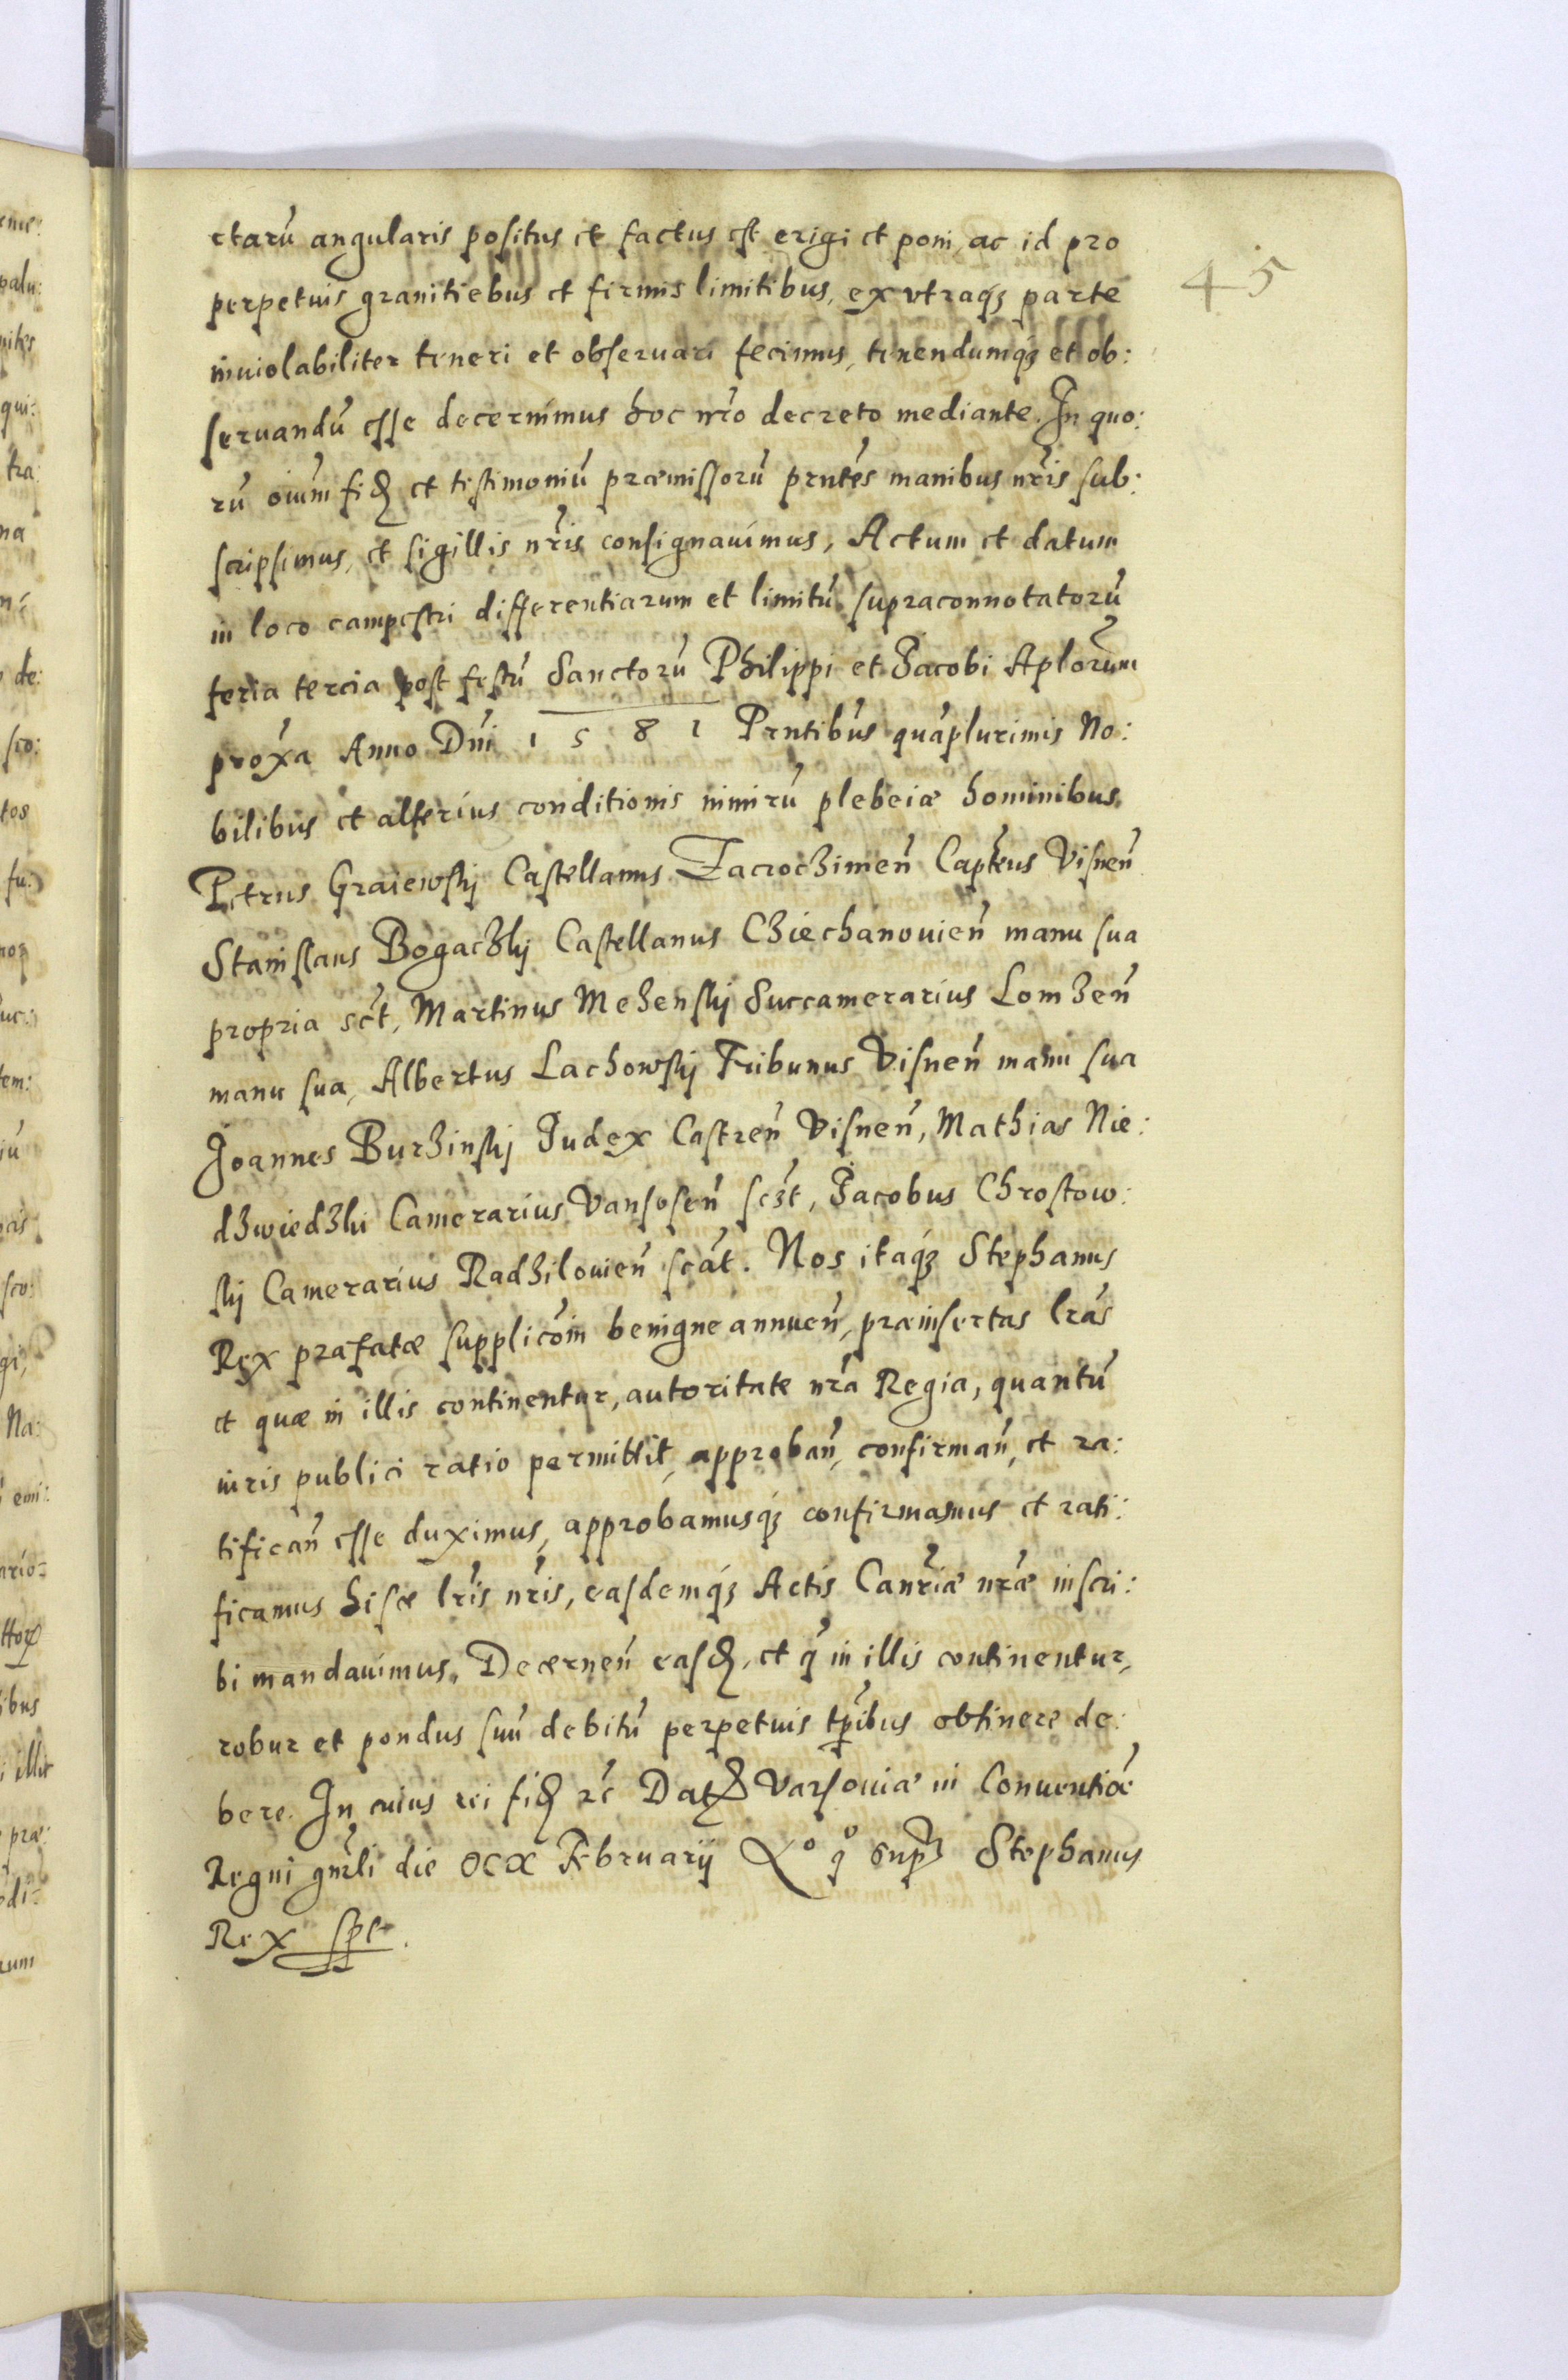 45
ctarũ angularis positus et factus est erigi et poni, ac id pro
perpetuis granitiebus et firmis limitibus, ex vtraqꝫ parte
inuiolabiliter teneri et obseruari fecimus, tenendumqꝫ et ob:
seruandũ esse decernimus hoc nr̃o decreto mediante. In quo:
rũ oiũm fiđ et testimoniũ præmissorũ pñtes manibus nr̃is sub:
scripsimus, et sigillis nr̃is consignauimus, Actum et datum
in loco campestri differentiarum et limitũ supraconnotatorũ
feria tercia post festũ Sanctorũ Philippi et Jacobi Aplorum
prox̃a Anno Dñi 1581 Prntibus quãplurimis No:
bilibus et alterius conditionis nimirũ plebeiæ hominibus,
Petrus Graiewskj Castellanus Zacrocȝimeñ Capt̃eus Visneñ
Stanislaus Bogacȝkj Castellanus Cȝiechanouieñ manu sua
propria sc̃t, Martinus Meȝenskj Succamerarius Lomȝeñ
manu sua, Albertus Lachowskj Tribunus Visneñ manu sua
Joannes Burȝinskj Judex Castreñ Visneñ, Mathias Nie:
dȝwiedȝki Camerarius Vansoseñ sc̃t, Jacobus Chrostow:
skj Camerarius Radȝilouieñ scãt. Nos itaqꝫ Stephanus
Rex præfatæ supplicõni benigne annueñ, præinsertas lr̃as
et quæ in illis continentur, autoritate nr̃a Regia, quantũ
iuris publici ratio permittit, approbañ, confirmañ, et ra:
tificañ esse duximus, approbamusqꝫ confirmamus et rati:
ficamus hisce lr̃is nr̃is, easdemqꝫ Actis Canr̃iæ nr̃æ inscri:
bi mandauimus. Decerneñ easđ, et q̃ in illis continentur,
robur et pondus suũ debitũ perpetuis tp̃ribus obtinere de:
bere. In cuius rei fiđ ꝛc̃ Dat Varsouiæ in Conuentiõe
Regni gnr̃li die Februarij qº supꝛ Stephanus
Rex sst.